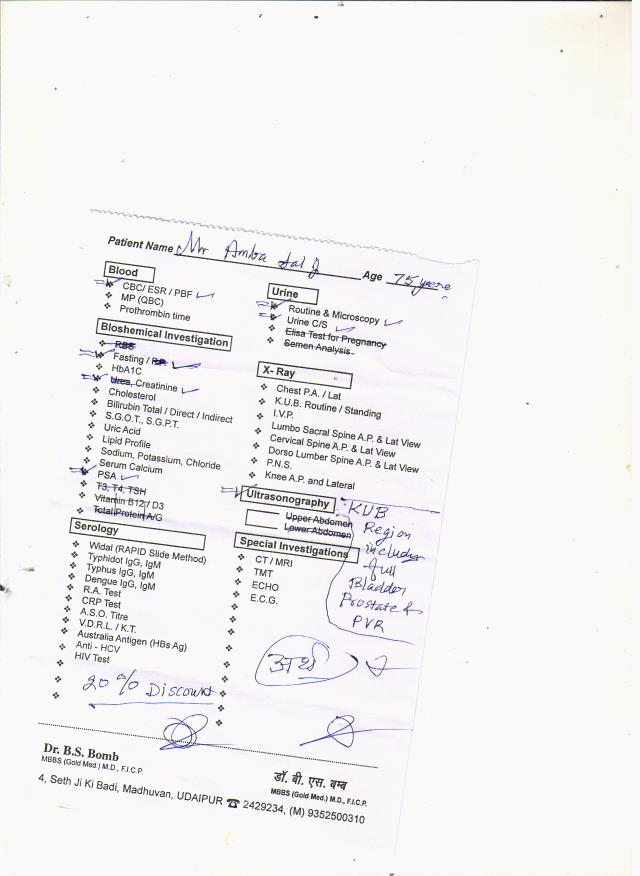 Patient Name Mr Amba Lal J Age 75 years
Blood
CBC/ ESR / PBF
MP (QBC)
Prothrombin time
Bioshemical Investigation
RBS
Fasting / P.P.
HbA1C
Urea, Creatinine
Cholesterol
Bilirubin Total / Direct / Indirect
S.G.O.T., S.G.P.T.
Uric Acid
Lipid Profile
Sodium, Potassium, Chloride
Serum Calcium
PSA
T3, T4, TSH
Vitamin B12 / D3
Total Protein A/G
Serology
Widal (RAPID Slide Method)
Typhidot IgG, IgM
Typhus IgG, IgM
Dengue IgG, IgM
R.A. Test
CRP Test
A.S.O. Titre
V.D.R.L. / K.T.
Australia Antigen (HBs Ag)
Anti - HCV
HIV Test
20% Discount
Urine
Routine & Microscopy
Urine C/S
Elisa Test for Pregnancy
Semen Analysis
X- Ray
Chest P.A. / Lat
K.U.B. Routine / Standing
I.V.P.
Lumbo Sacral Spine A.P. & Lat View
Cervical Spine A.P. & Lat View
Dorso Lumber Spine A.P. & Lat View
P.N.S.
Knee A.P. and Lateral
Ultrasonography
Upper Abdomen
Lower Abdomen
KUB
Region
includes
full
Bladder
Prostate &
PVR
Special Investigations
CT / MRI
TMT
ECHO
E.C.G.
अर्थ
Dr. B.S. Bomb
MBBS (Gold Med.) M.D., F.I.C.P.
डॉ. बी. एस. बम्ब
MBBS (Gold Med.) M.D., F.I.C.P.
4, Seth Ji Ki Badi, Madhuvan, UDAIPUR ☎ 2429234, (M) 9352500310